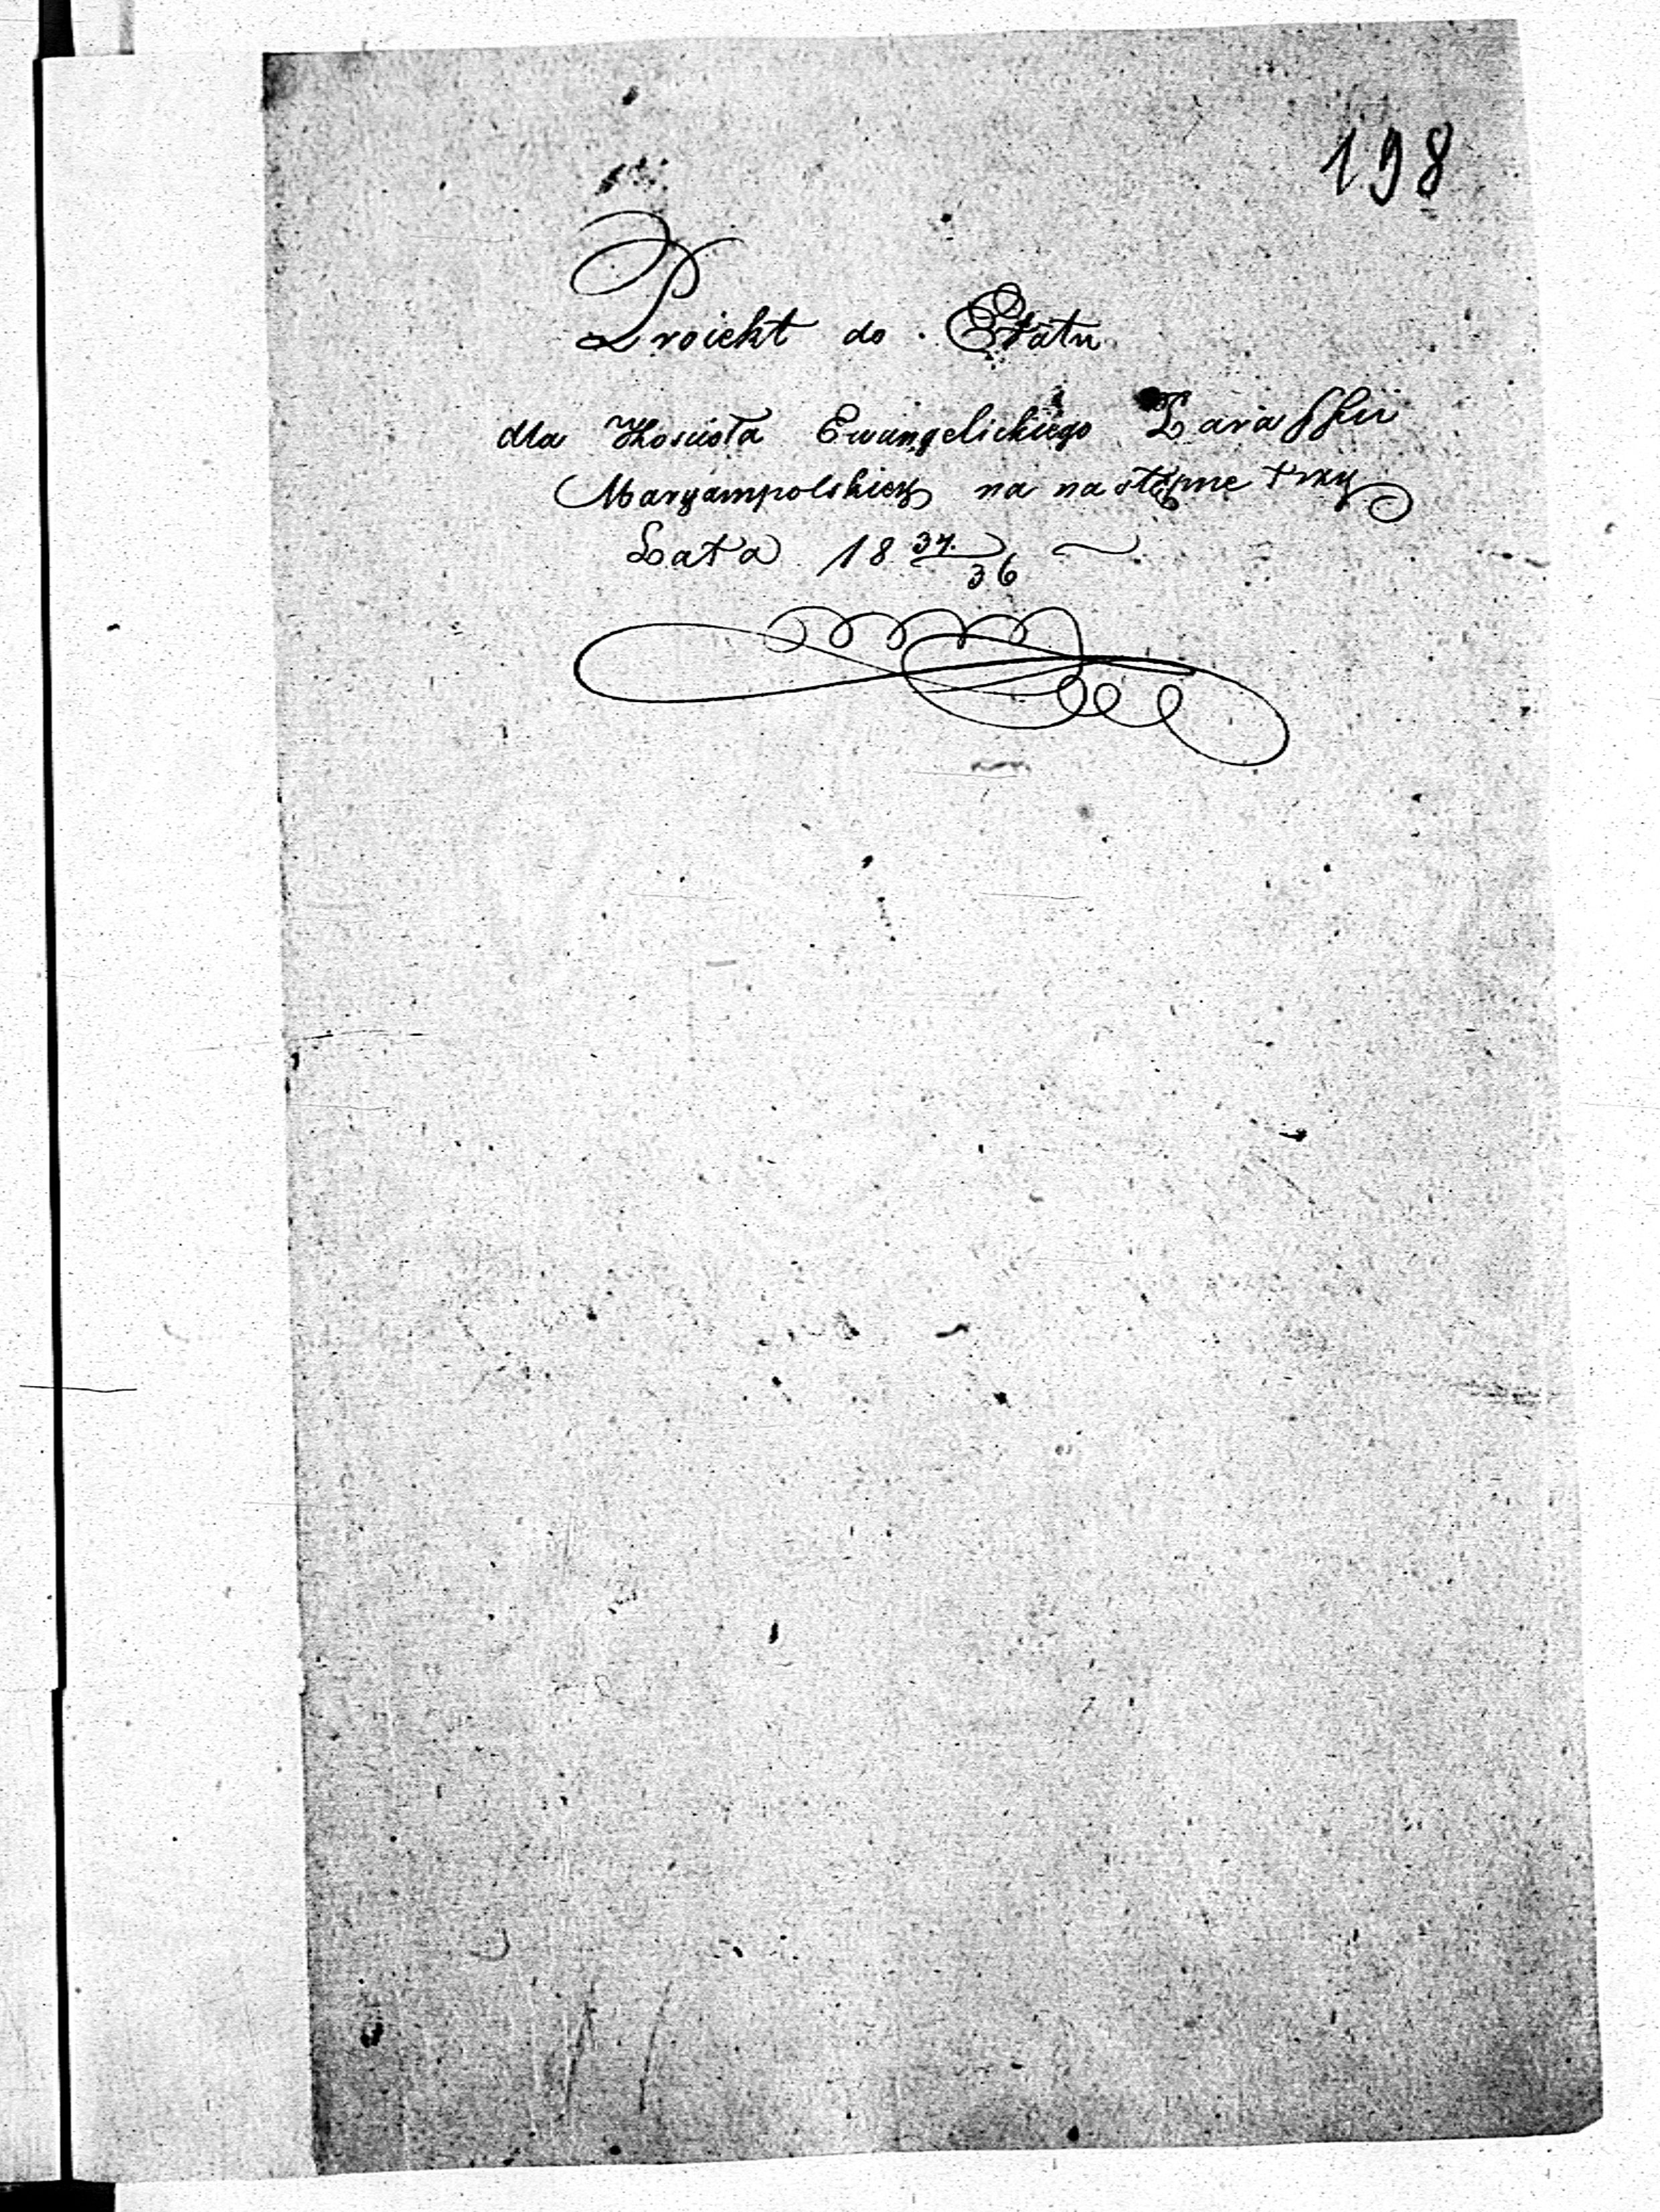 198
Proiekt do Etatu
dla Koscioła Ewangelickiego Paraffii
Maryampolskiey na następne trzy
Lata 18 34/36